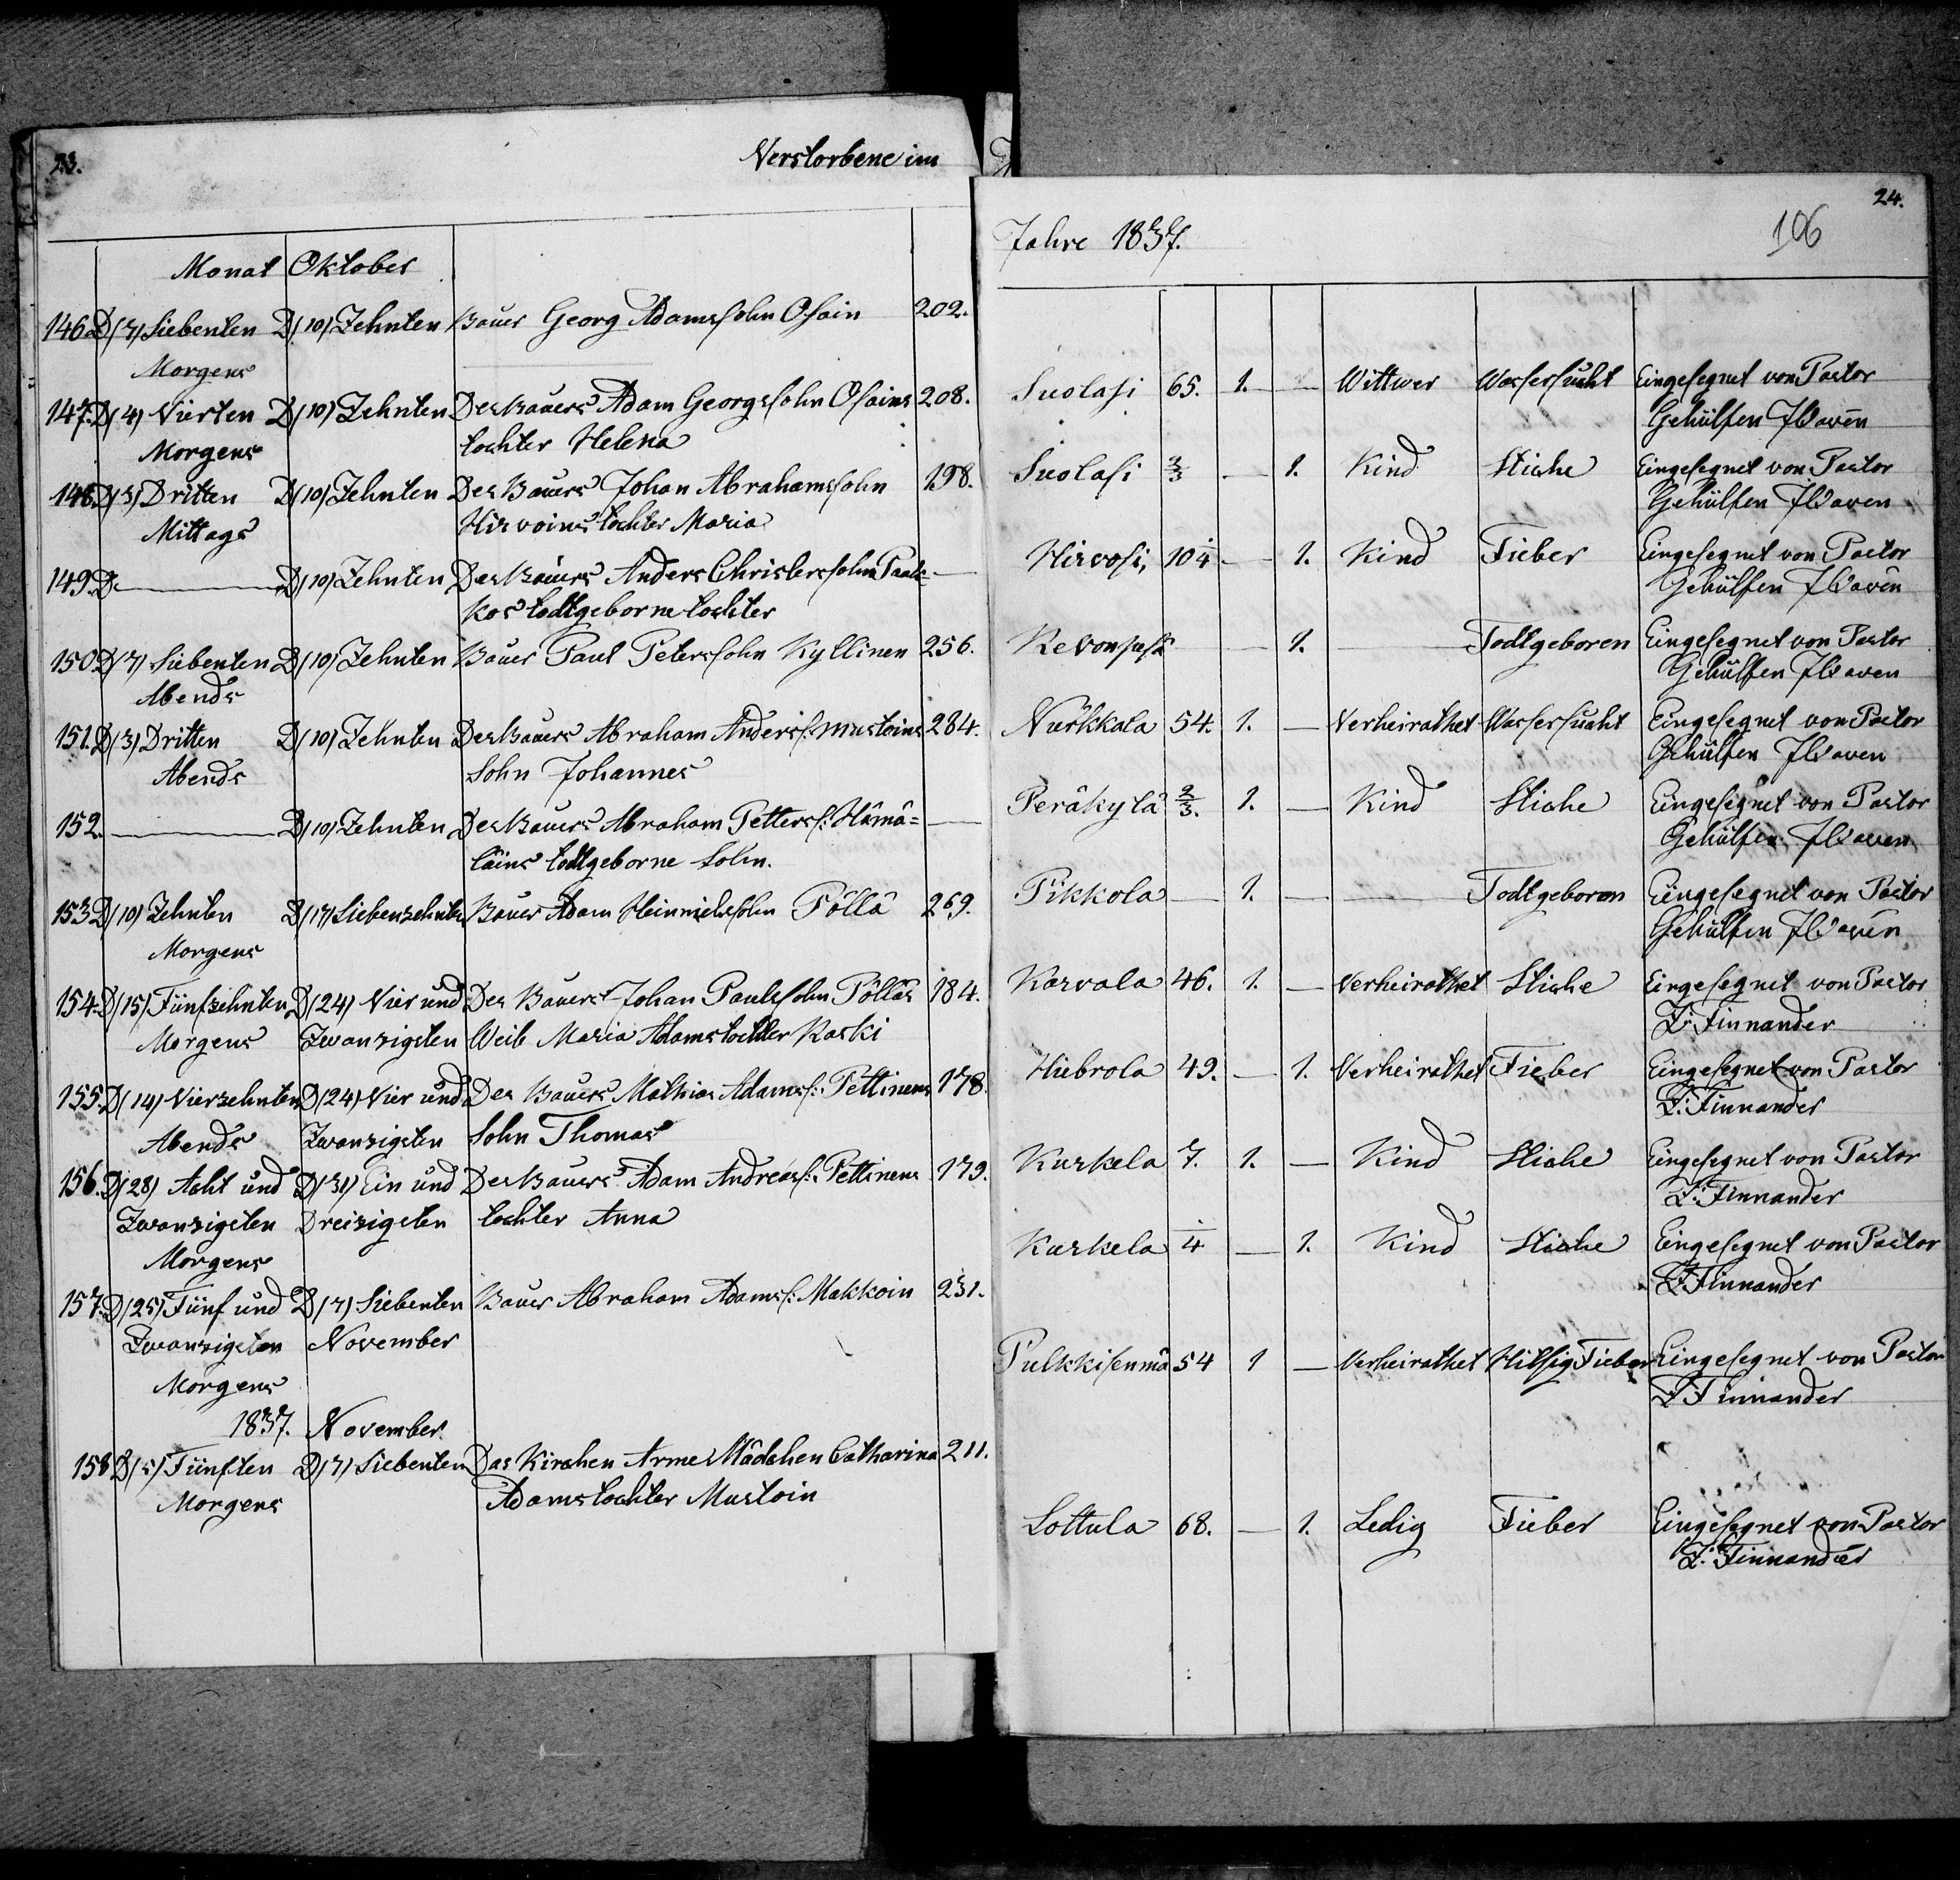 23.
Verstorbene im
Monat Oktober
146. D (7) Siebenten D (10) Zehnten Bauer Georg Adamssohn Osain 202.
Morgens
147. D (4) Vierten D (10) Zehnten Des Bauers Adam Georgssohn Osains 208.
Morgens tochter Helena
148. D (3) Dritten D (10) Zehnten Des Bauers Johan Abrahamssohn 198.
Mittags Hirvoins tochter Maria
149. D — D (10) Zehnten Des Bauers Anders Christerssohn —
kos todtgeborne tochter
150. D (7) Siebenten D (10) Zehnten Bauer Paul Peterssohn Kyllinen 256.
Abends
151. D (3) Dritten D (10) Zehnten Des Bauers Abraham Anderss: Mustoins 284.
Abends Sohn Johannes
152. — D (10) Zehnten Des Bauers Abraham Petterss: Hämä= —
läins todtgeborne Sohn.
153. D (10) Zehnten D (17) Siebenzehnten Bauer Adam Heinrichssohn Pöllä 269.
Morgens
154. D (15) Fünfzehnten D (24) Vier und Des Bauers Johan Paulssohn Pölläs 184.
Morgens Zwanzigsten Weib Maria Adamstochter Kaski
155. D (14) Vierzehnten D (24) Vier und Des Bauers Mathias Adamss: Pettinens 178.
Abends Zwanzigsten Sohn Thomas
156. D (28) Acht und D (31) Ein und Des Bauers Adam Andreass: Pettinens 179.
Zwanzigsten Dreizigsten tochter Anna
Morgens
157. D (25) Fünf und D (7) Siebenten Bauer Abraham Adamss: Makkoin 231.
Zwanzigsten November
Morgens
1837. November
158 D (5) Fünften D (7) Siebenten Das Kirchen Arme Mädchen Catharina 211.
Morgens Adamstochter Mustoin
24.
106
Jahre 1837.
Suolasi 65. 1. — Wittwer Wassersucht Eingesegnet von Pastor
Gehülfen
Suolasi 2/3 — 1. Kind Stiche Eingesegnet von Pastor
Gehülfen
Hirvosi, 10 — 1. Kind Fieber Eingesegnet von Pastor
Gehülfen
— 1. — Todtgeboren Eingesegnet von Pastor
Gehülfen
Nurkkala 54. 1. — Verheirathet Wassersucht Eingesegnet von Pastor
Gehülfen
Peräkylä 2/3. 1. — Kind Stiche Eingesegnet von Pastor
Gehülfen
Pikkola — 1. — Todtgeboren Eingesegnet von Pastor
Gehülfen
Karvala 46. 1. — Verheirathet Stiche Eingesegnet von Pastor
F: Finnander
Hiebrola 49. — 1. Verheirathet Fieber Eingesegnet von Pastor
F: Finnander
Kurkela 7. 1. — Kind Stiche Eingesegnet von Pastor
F: Finnander
Kurkela 1/4 — 1. Kind Stiche Eingesegnet von Pastor
F: Finnander
Pulkkisenmä 54 1 — Verheirathet Hitsig Fieber Eingesegnet von Pastor
F: Finnander
Lottula 68. — 1. Ledig Fieber Eingesegnet von Pastor
F: Finnander